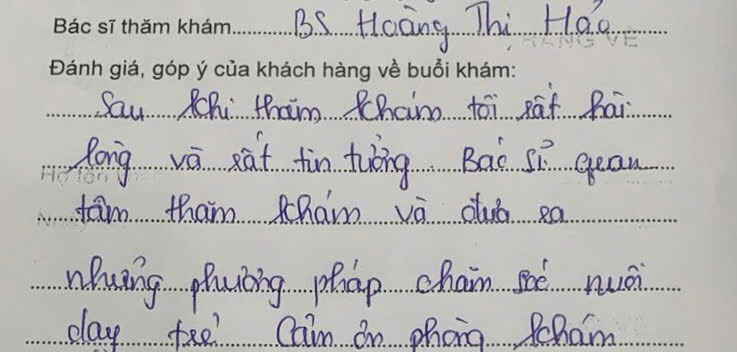 Bác sĩ thăm khám.......... BS Hoàng Thị Hảo
Đánh giá, góp ý của khách hàng về buổi khám:
Sau khi thăm khám tôi rất hài
lòng và rất tin tưởng. Bác sĩ quan
tâm thăm khám và đưa ra
những phương pháp chăm sóc nuôi
dạy trẻ. Cảm ơn phòng khám